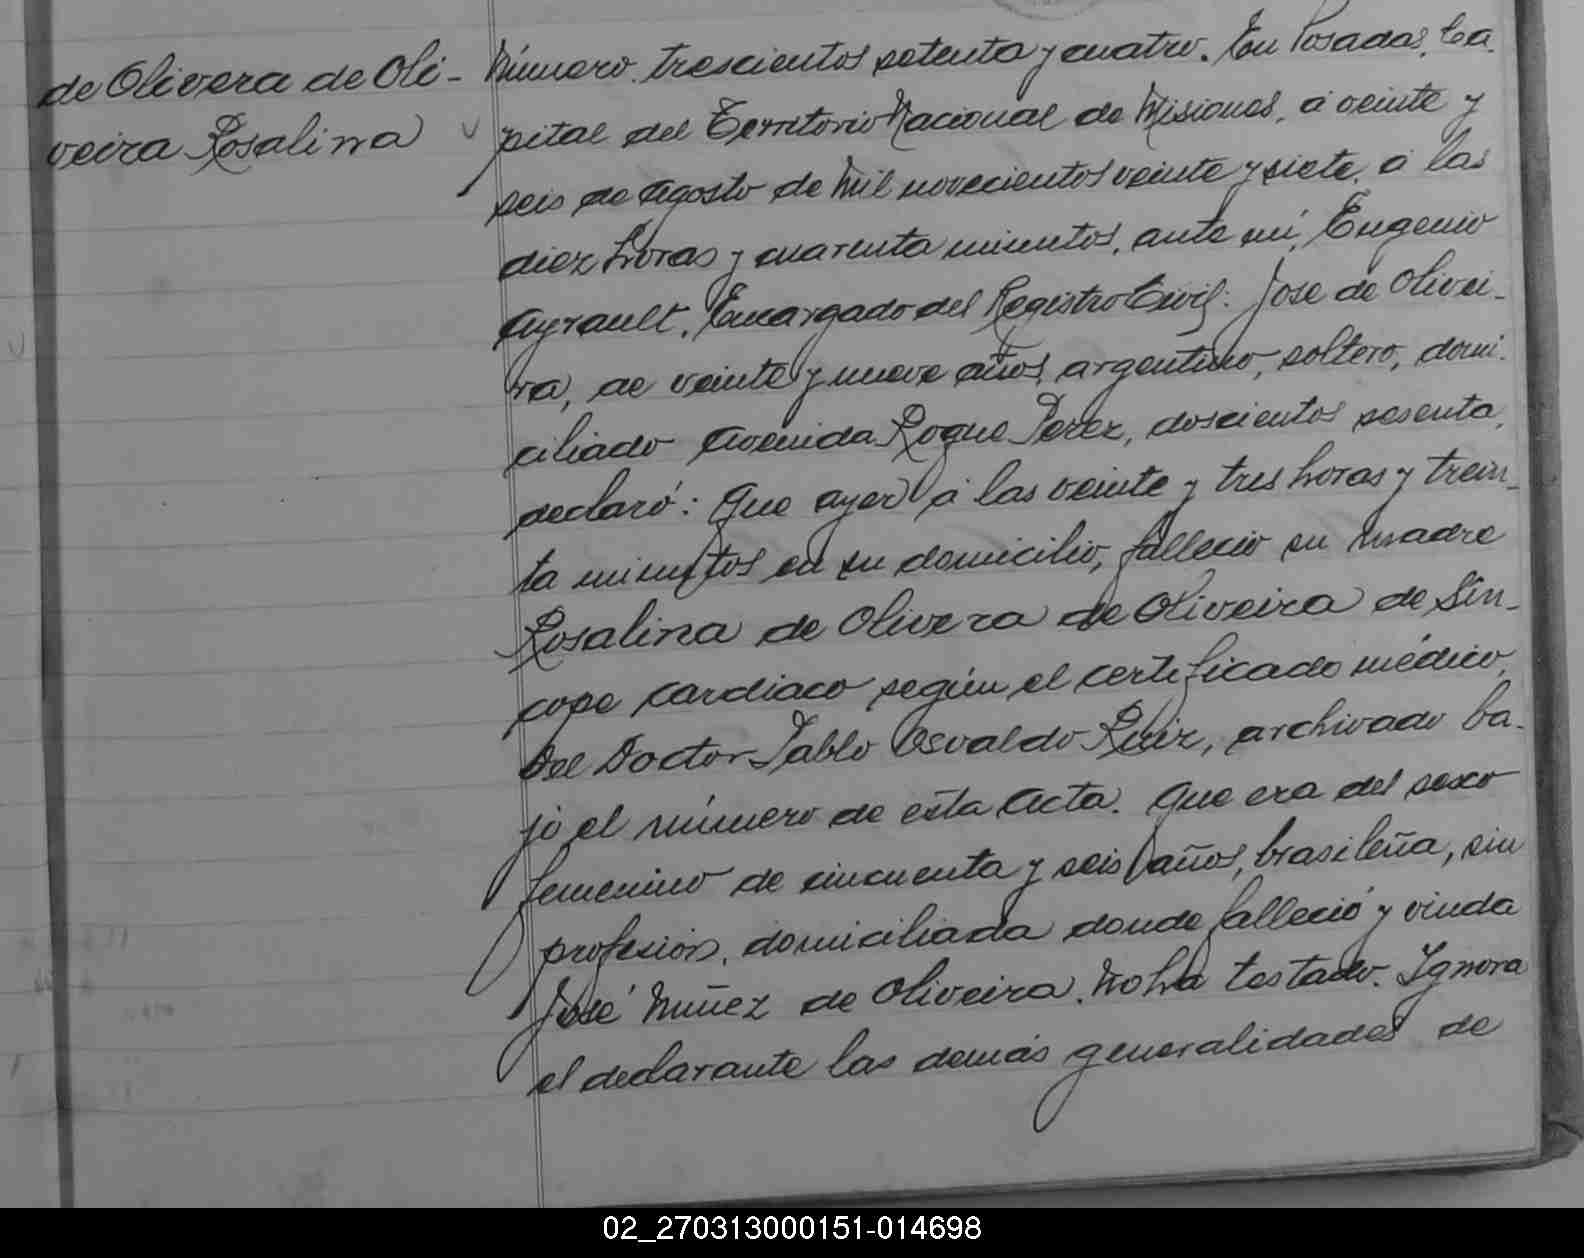 de Olivera de Oli-
veira Rosalina
Número trescientos setenta y cuatro. En Posadas, Ca-
pital del Territorio Nacional de Misiones, á veinte y
seis de Agosto de Mil novecientos veinte y siete, á las
diez horas y cuarenta minutos, ante mí, Eugenio
Ayrault, Encargado del Registro Civil: Jose de Olivei-
ra, de veinte y nueve años, argentino, soltero, domi-
ciliado Avenida Roque Perez, doscientos sesenta,
declaró: Que ayer á las veinte y tres horas y trein-
ta minutos en su domicilio, falleció su madre
Rosalina de Olivera de Oliveira de Sín-
cope cardiaco según el certificado médico,
Del Doctor Pablo Osvaldo Ruiz, archivado ba-
jo el número de esta Acta. Que era del sexo
femenino de cincuenta y seis años, brasileña, sin
profesión, domiciliada donde falleció y viuda
José Nuñez de Oliveira. No ha testado. Ignora
el declarante las demás generalidades de
02_270313000151-014698